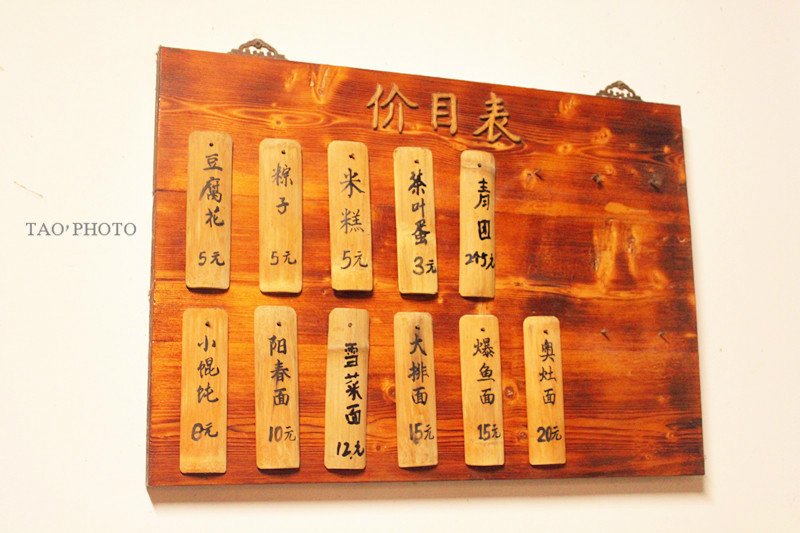 价目表
豆腐花
5元
粽子
5元
米糕
5元
茶叶蛋
3元
青团
小馄饨
8元
阳春面
10元
雪菜面
12元
大排面
15元
爆鱼面
15元
奥灶面
20元
TAO'PHOTO